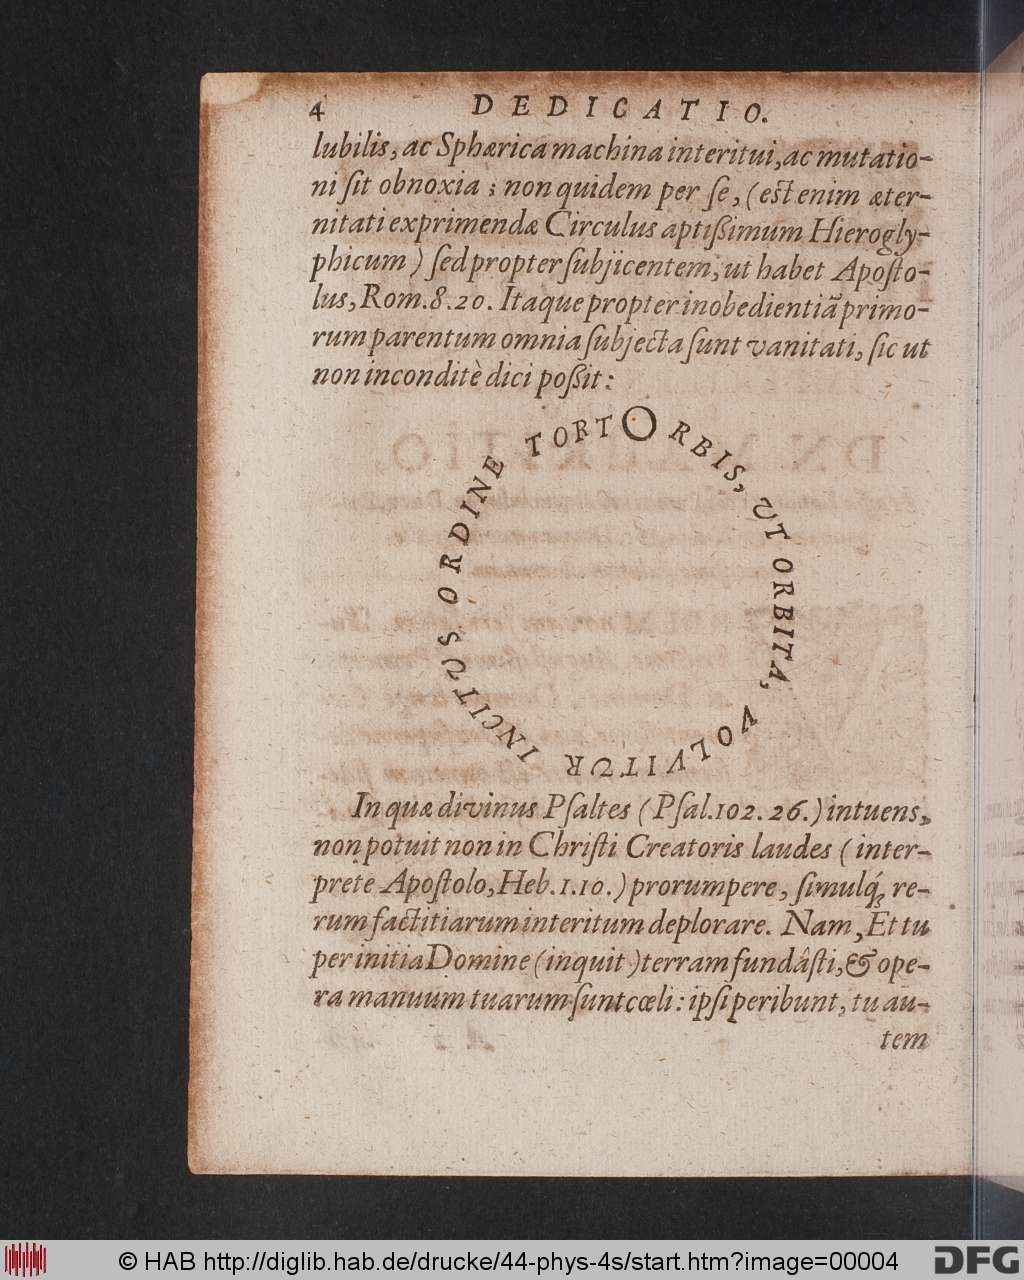 4 DEDICATIO.
lubilis, ac Sphærica machina interitui, ac mutatio-
ni ſit obnoxia ; non quidem per ſe, (est enim æter-
nitati exprimendæ Circulus aptißimum Hierogly-
phicum ) ſed propter ſubjicentem, ut habet Apoſto-
lus, Rom. 8. 20. Itaque propter inobedientiā primo-
rum parentum omnia ſubjecta ſunt vanitati, ſic ut
non inconditè dici poßit :
ORBIS, UT ORBITA, VOLVITUR INCITUS ORDINE TORTO
In quæ divinus Pſaltes ( Pſal. 102. 26. ) intuens,
non potuit non in Chriſti Creatoris laudes ( inter-
prete Apoſtolo, Heb. 1. 10. ) prorumpere, ſimulq́; re-
rum factitiarum interitum deplorare. Nam, Et tu
per initia Domine ( inquit ) terram fundâſti, & ope-
ra manuum tuarum ſunt cœli : ipſi peribunt, tu au-
tem
© HAB http://diglib.hab.de/drucke/44-phys-4s/start.htm?image=00004
DFG